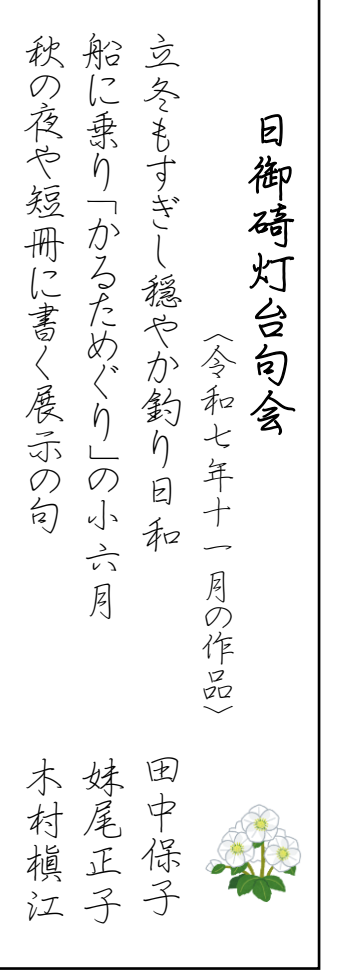 日御碕灯台句会
〈令和七年十一月の作品〉
立冬もすぎし穏やか釣り日和 田中保子
船に乗り「かるためぐり」の小六月 妹尾正子
秋の夜や短冊に書く展示の句 木村槇江